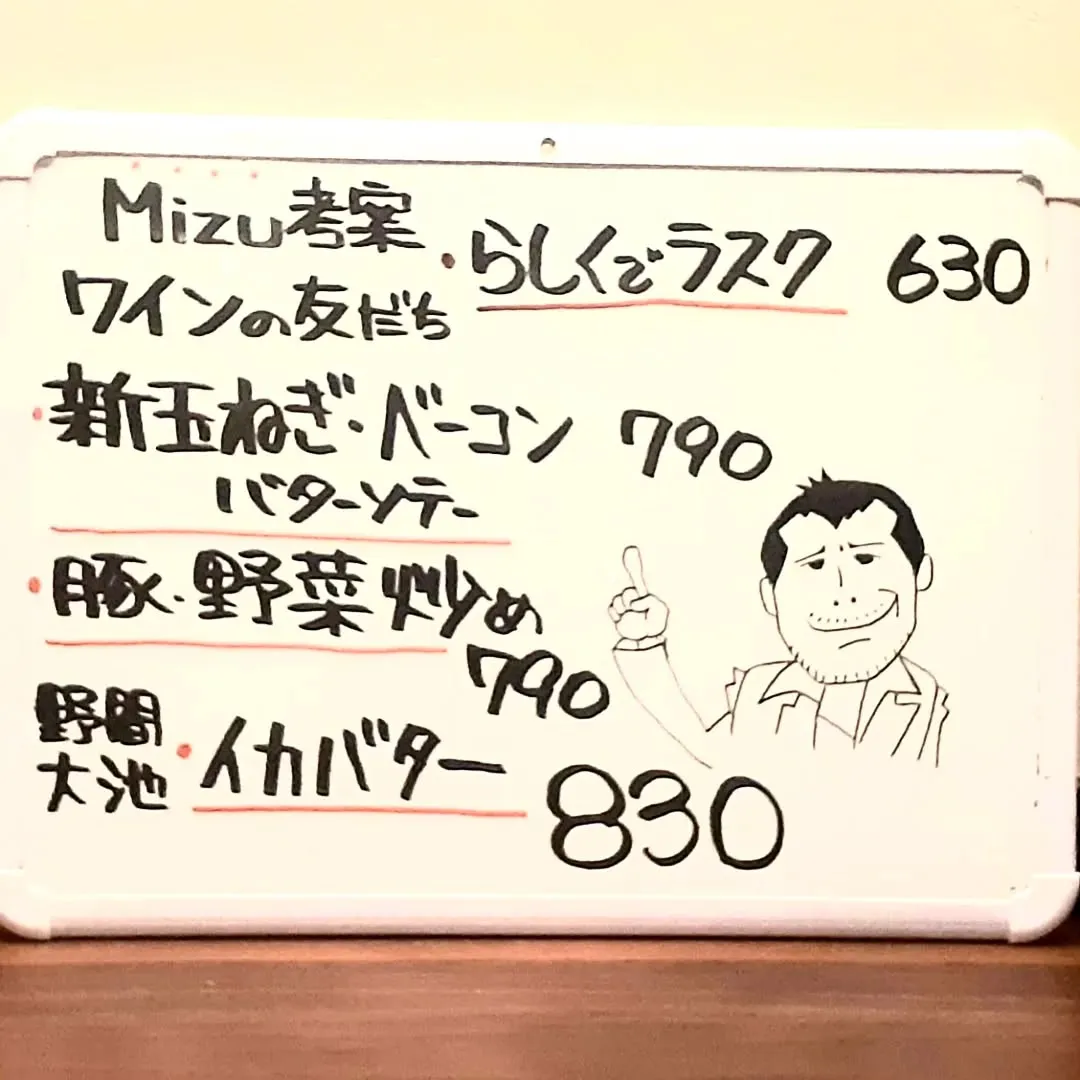 Mizu考案
ワインの友だち
・らしくでラスク 630
・新玉ねぎ・ベーコン 790
バターソテー
・豚・野菜炒め
790
野間
大池
・イカバター 830